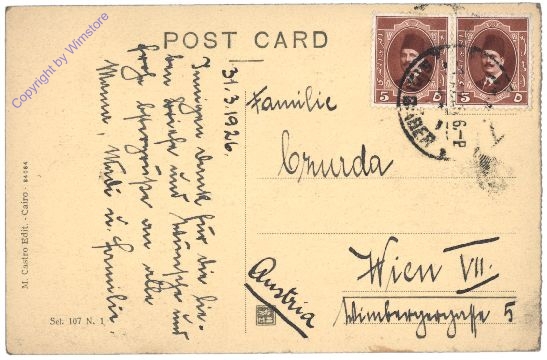 Copyright by Wimstore
POST CARD
31.3.1926.
Innigen Dank für die lie-
ben Briefe und Wünsche und
frohe Ostergrüße an alle
Mama, u. Familie.
Familie
Czurda
Wien VII.
Wimbergergasse 5
Austria
5 5
M. Castro Edit. - Cairo - 84084
Sel. 107 N. 1